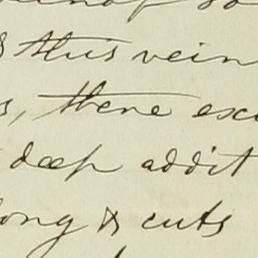 this vein
there exc
deep addit
ong & cuts